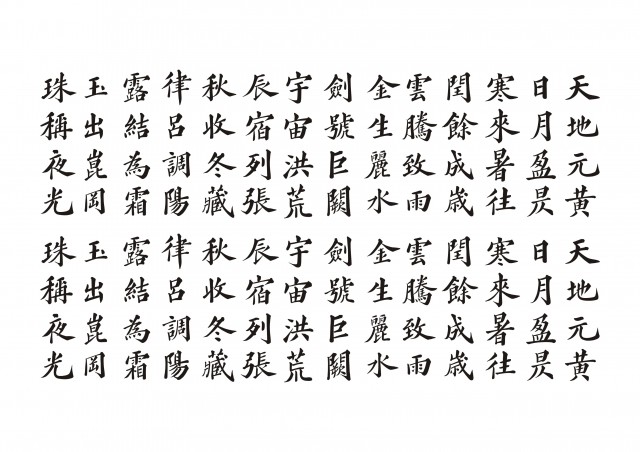 天地元黄
日月盈昃
寒來暑往
閏餘成歲
雲騰致雨
金生麗水
劍號巨闕
宇宙洪荒
辰宿列張
秋收冬藏
律呂調陽
露結為霜
玉出崑岡
珠稱夜光
天地元黄
日月盈昃
寒來暑往
閏餘成歲
雲騰致雨
金生麗水
劍號巨闕
宇宙洪荒
辰宿列張
秋收冬藏
律呂調陽
露結為霜
玉出崑岡
珠稱夜光